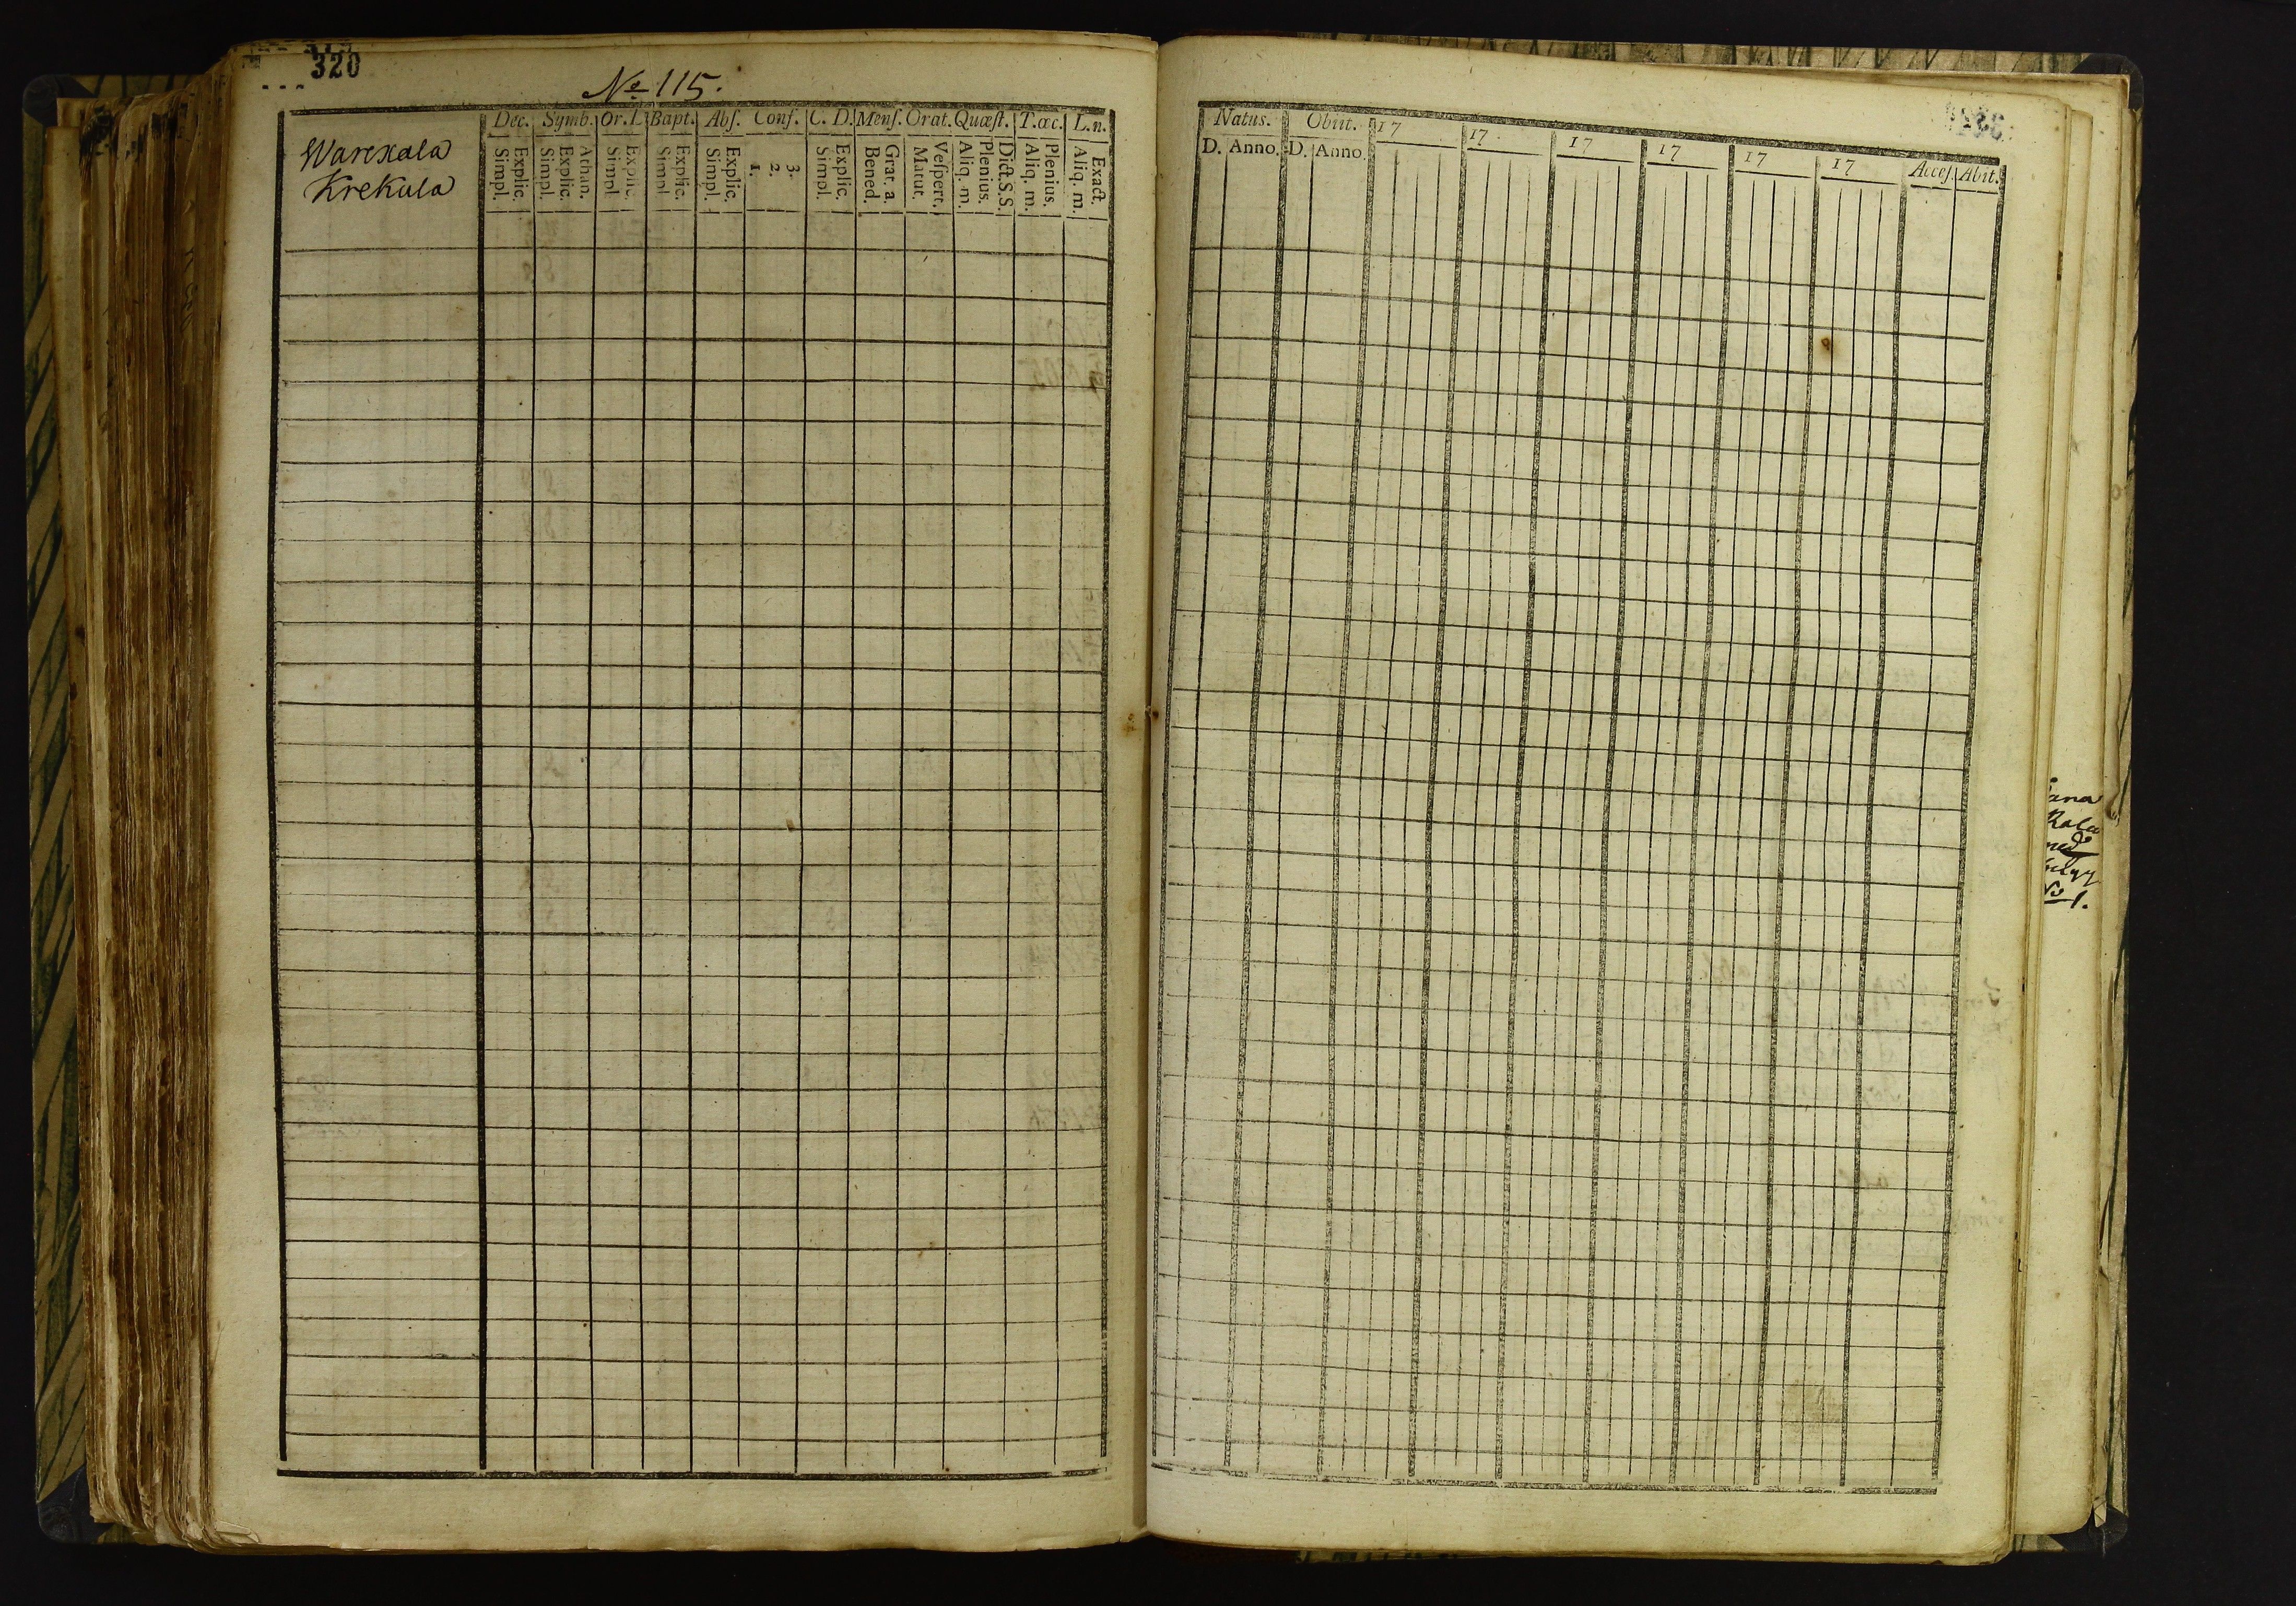 320
No 115.
Warexala
Krekula
Dec. Symb. Or. D Bapt. Abſ. Conf. C. D. Menſ. Orat. Quæſt. T. œc. L. n.
Explic. Simpl.
Athan. Explic. Simpl.
Explic. Simpl.
Explic. Simpl.
Explic. Simpl.
3. 2. 1.
Explic. Simpl.
Grat. a. Bened.
Veſpert. Matut.
Dict. S. S. Plenius. Aliq. m.
Plenius. Aliq. m.
Exact. Aliq. m.
Natus. Obiit. 17 17 17 17 17 17 Acceſ. Abit.
D. Anno. D. Anno.
No 1.